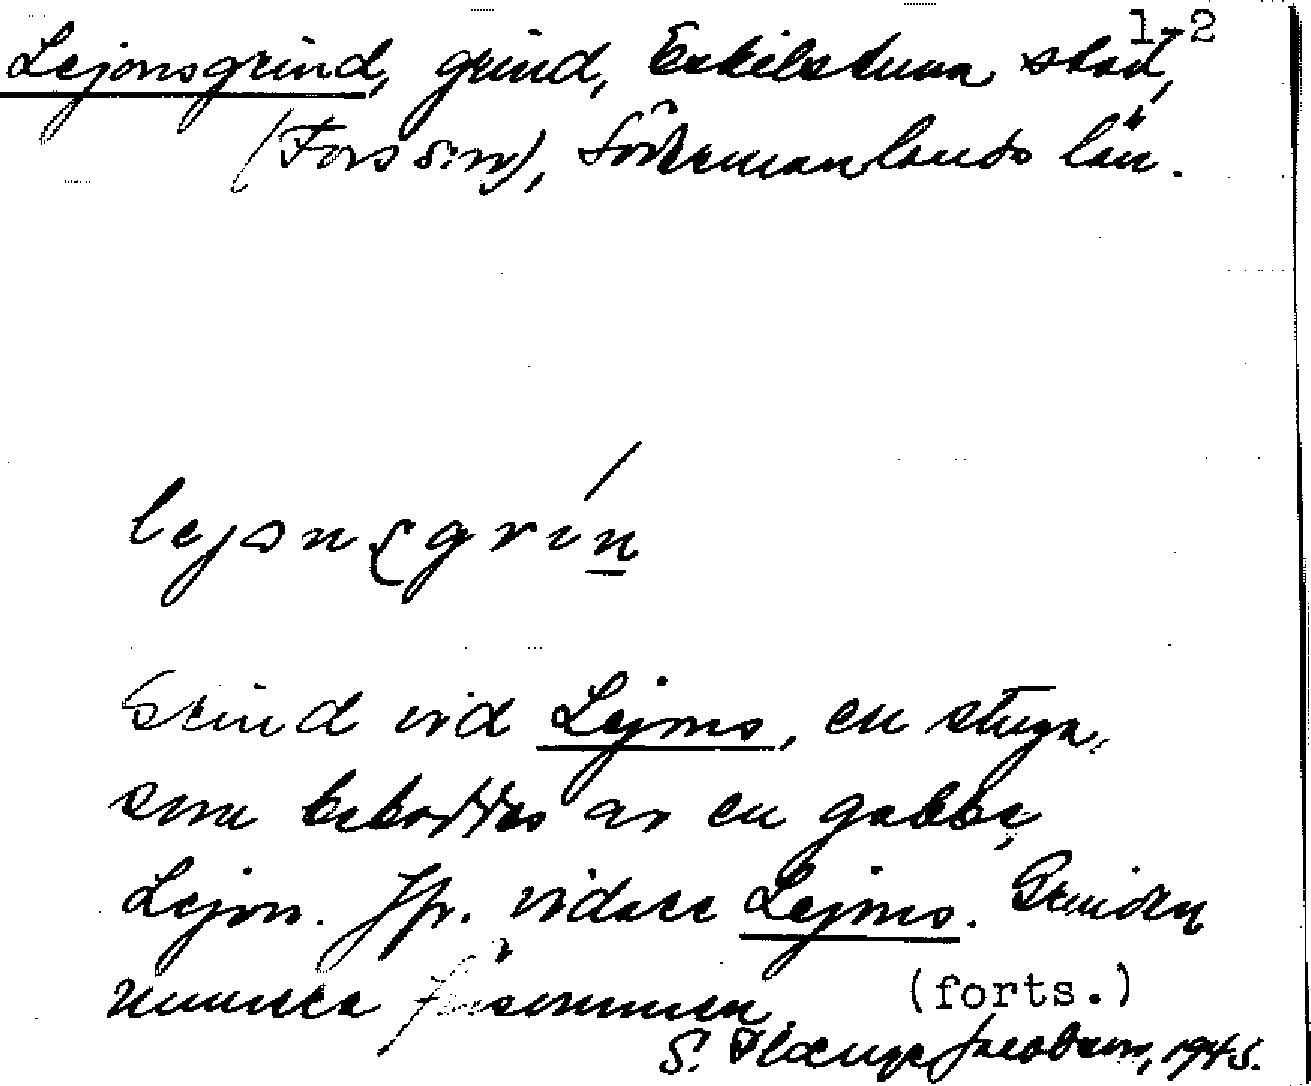 1-2
Lejonsgrind, grind, Eskilstuna stad,
(Fors sn), Södermanlands län.
lejonsgrín
Grind vid Lejons, en stuga,
som beboddes av en gubbe,
Lejon. Jfr. vidare Lejons. Grinden
numera försvunnen.
(forts.)
S. 1945.